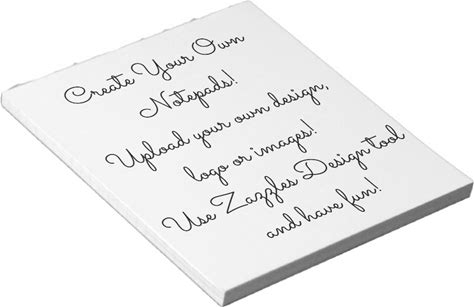 Create Your Own
Notepads!
Upload your own design,
logo or images!
Use Zazzles Design tool
and have fun!